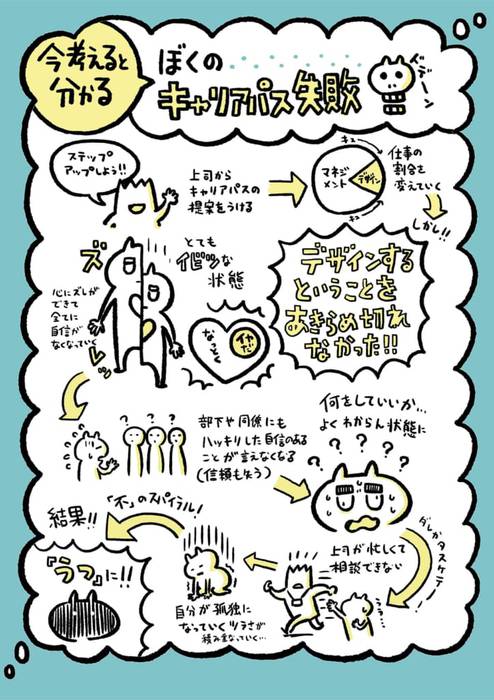 今考えると
分かる
ぼくの
キャリアパス失敗
ステップ
アップしよう!!
上司から
キャリアパスの
提案をうける
マネジ
メント
デザイン
キュッ
キュッ
仕事の
割合を
変えていく
しかし!!
デザインする
ということを
あきらめ切れ
なかった!!
とても
イビツな
状態
ズレッ
心にズレが
できて
全てに
自信が
なくなっていく
なっとく
? ? ?
部下や同僚にも
ハッキリした自信のある
ことが言えなくなる
(信頼も失う)
何をしていいか…
よくわからん状態に
? ? ? ? ?
ダレかタスケテー!
上司が忙しくて
相談できない
自分が孤独に
なっていくツラさが
積み重なっていく…
「不」のスパイラル!
結果!!
『うつ』に!!